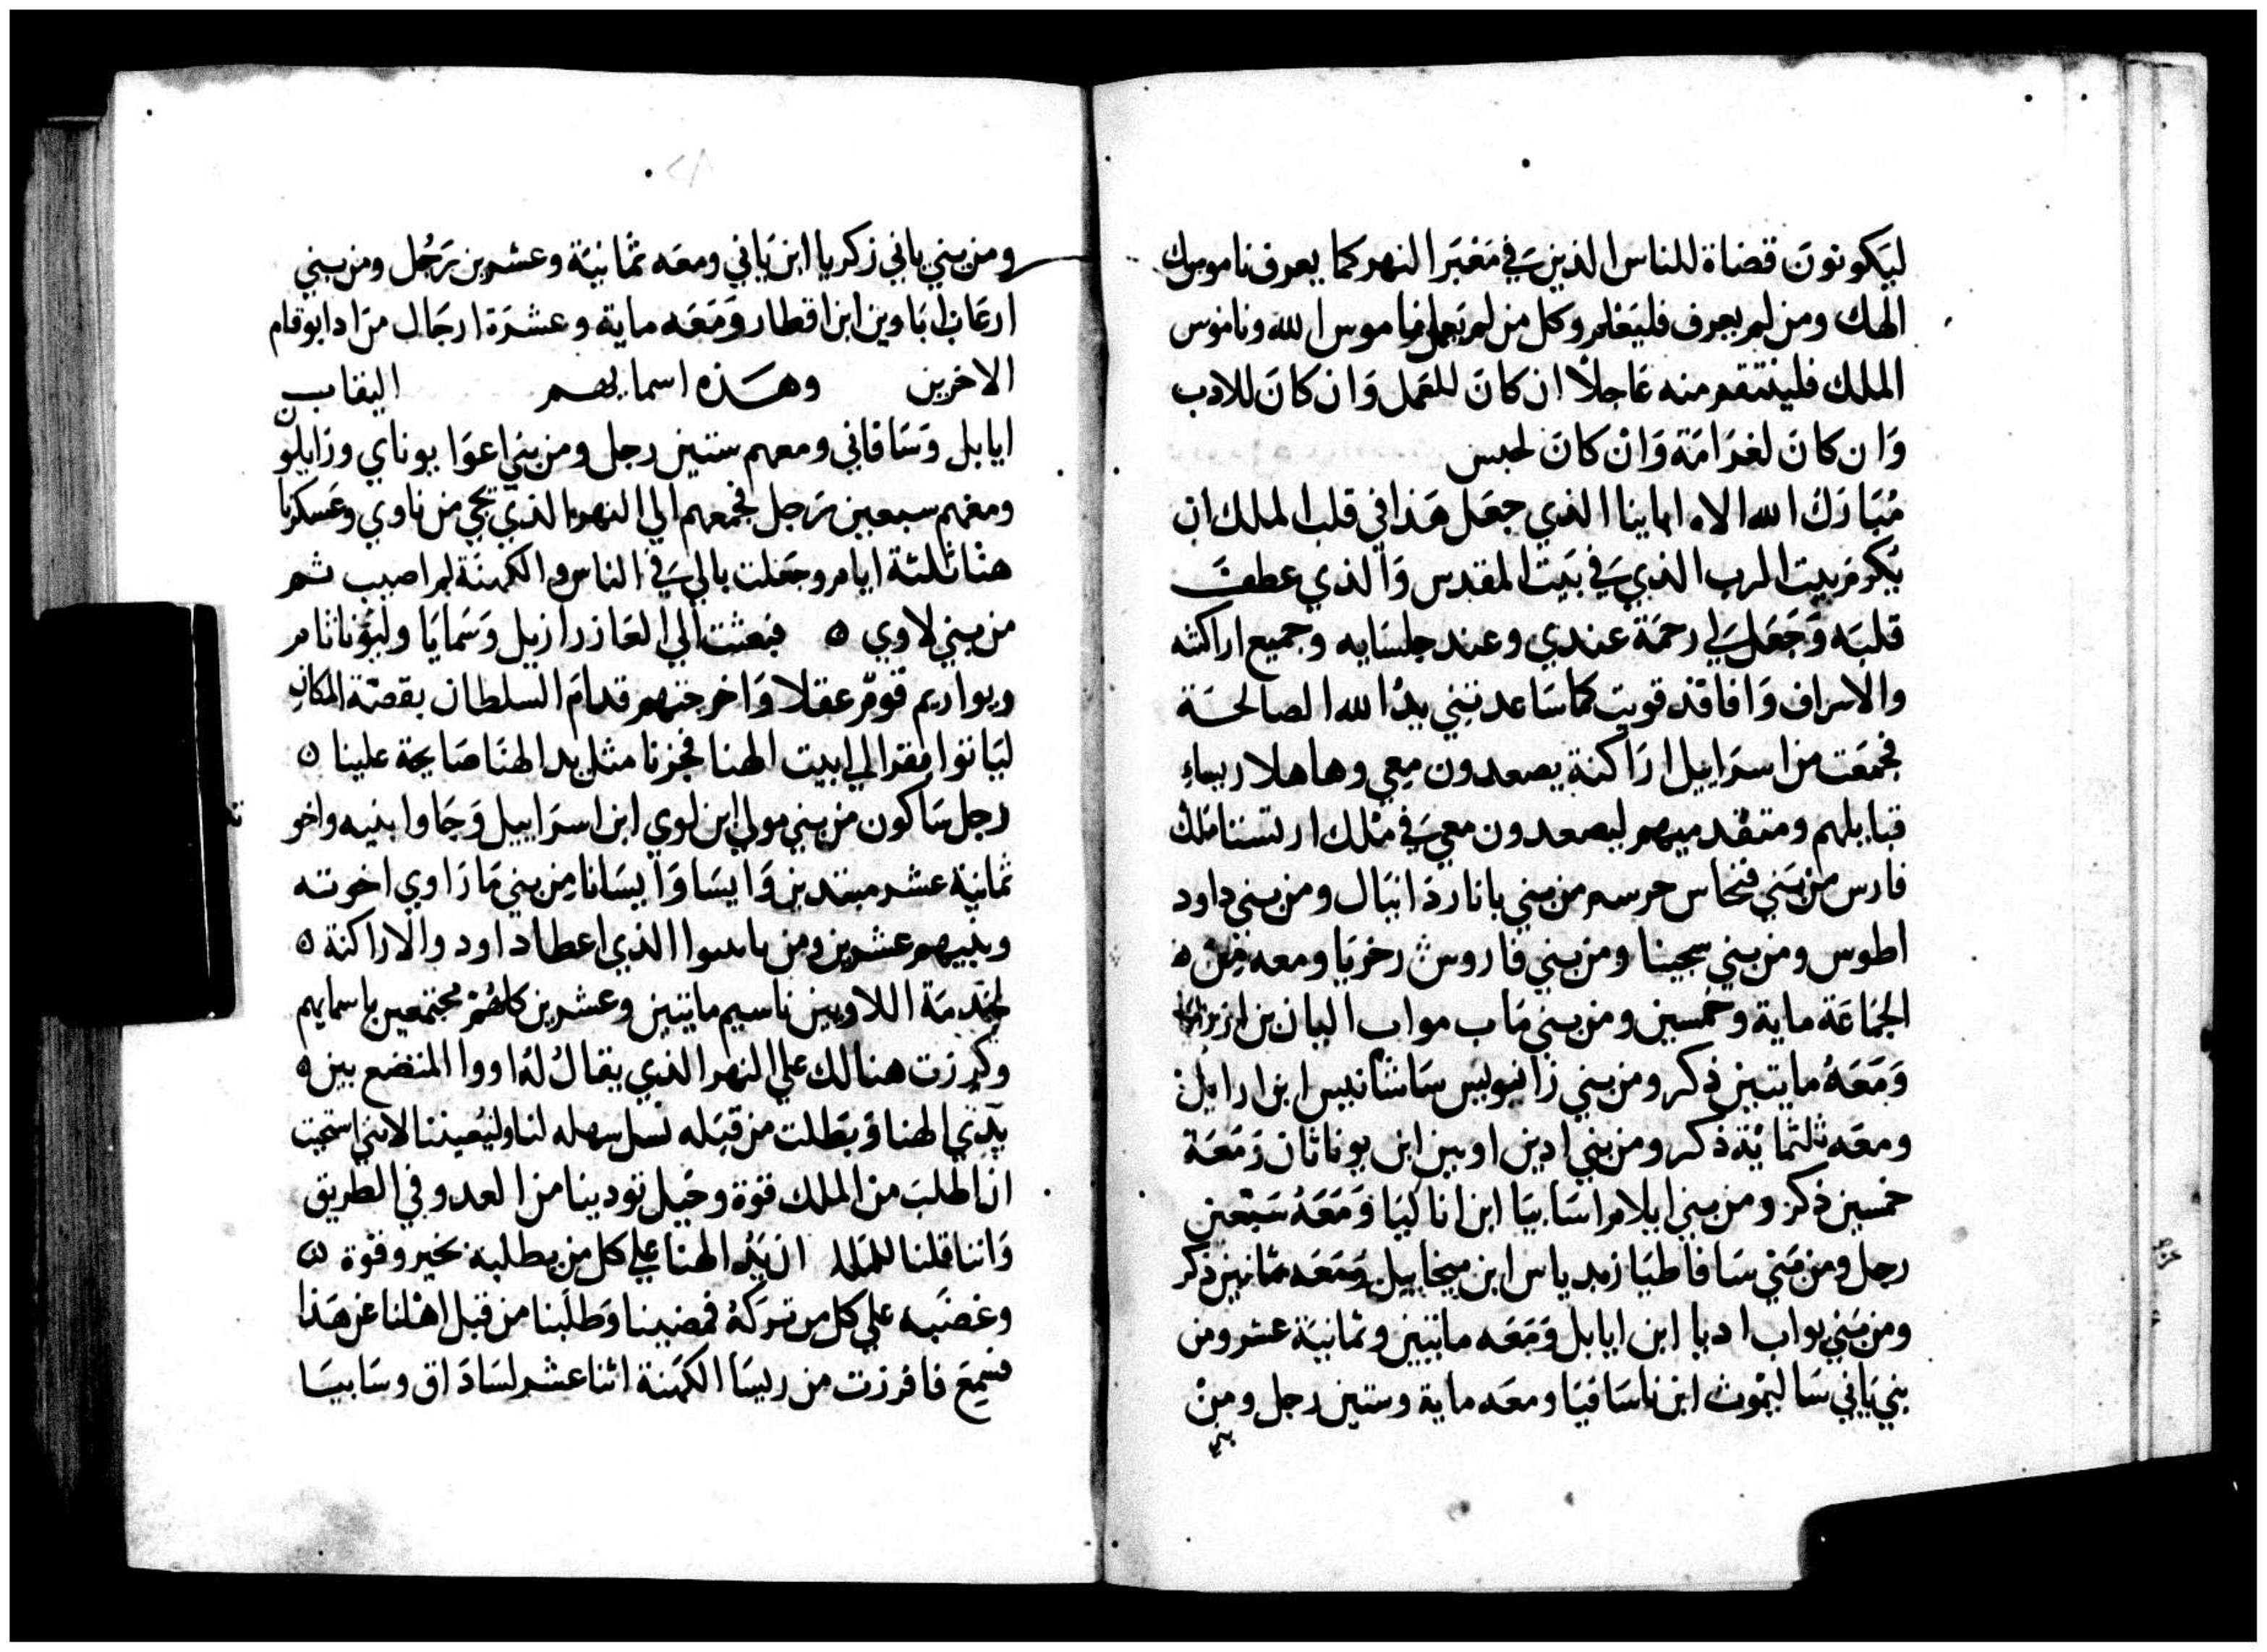 ليَكونونَ قضاة للناس الذين في مَعبَر النهر كما يعرف ناموسك
الهك ومن لم يعرف فليَعْلم وكل من لم يَعمل ناموس الله وناموس
الملك فلينتقم منه عَاجلاً ان كانَ للعمل وَان كانَ للادب
وَان كانَ لغرَامَة وَانْ كانَ لحبس
مُبَارَك الله الاه اباينا الذي جعَل هَذا في قلب الملك ان
يكرم بيت الرب الذي في بَيت المقدس وَالذي عطف
قلبَه وَجَعَل لي رحمَة عندي وعند جلسَايه وجميع اراكنته
والاسراف وَافاقد قويت كما سَاعدتني يدُ الله الصالحَة
فجمعَت من اسرَاييل ارَاكنة يصعدون معي وهاهلا ريساء
قبايلهم ومتقدميهم ليصعدون معي في مُلك ارتسنا مَلك
فارس من بَني فنحاس حرسم من بني باناردَانيَال ومن بني داود
اطوس ومن بني سجينا ومن بني فاروش زخريَا ومعه مِن ٥
الجمَاعَة ماية وخمسين ومن بني مَاب مواب اليان بن
وَمَعَهُ مايتين ذكر ومن بني زَاتيوليس سَاشانيس ابن ارايل
ومعَه ثلثمايَة ذكر ومن بني ادين اوبين ابن يوناثان وَمَعَة
خمسين ذكر ومن بني ايلام اسَابيَا ابن اناليَا وَمَعَهُ سَبْعين
رجل ومن بَني سَافاطيَا زبدياس ابن ميخاييل وَمَعَه ثمانين ذكر
ومن بَني يواب اديا ابن ايابل وَمَعَه مايتين وثمانيَة عشر ومن
بني بَاني سَاليمَوث ابن ناسَافيَا ومعَه ماية وستين رجل ومنْ
بني
ومن بني باني زكريا ابن بَاني ومعَه ثمَانيَة وعشرين رَجُل ومن بني
ارعَات ابَاوين ابن اقطار وَمَعَه ماية وعشرَة ارجَال من ادابوقام
الاخرين وهَذه اسمايهم اليفات
ايابل وَسَافاني ومعهم ستين رجل ومن بني اعوَا يوناي وزابلو
ومعهم سبعين رَجل فجمعهم الي النهر الذي يجي من ناوي وعَسكرنا
هنَا ثلثة ايام وجعَلت بالي في الناس والكهنَة لم اصيب ثم
من بني لاوي ٥ فبعثت الي العَازر ازيل وَسَمايَا وليَوناثام
ويواريم قومٌ عقلا وَاخرجتهم قدامَ السلطان بقصّة المكان
ليَاتوا فقرا الي بيت الهنا فجزنا مثل يد الهنَا صَالحة علينا ٥
رجل سَاكون من بني مولي ابن لوي ابن اسرَاييل وَجَاوا بنيه واخو
ثمَانية عشر مبتدين وَايسَا وَايسَانا من بني مَارَاوي اخوته
وبنيهم عشرين ومن الذي اعطا داود والاراكنة ٥
لخدمَة اللاويين ناسيم مايتين وعشرين كلهُمْ مجتمعين باسمايهم
وكرزت هنالك علي النهر الذي يقالُ لهُ اووا المتضع بين ٥
يَدَي الهنا وَبَطلت من قبَله نسل سهله لنا وليُعيننا لانني استحيَت
ان اطلبَ من الملك قوَة وخَيل تودينا من العدو في الطريق
وَاننا قلنا للملك ان يَدْ الهنَا علي كل من يطلبه بخير وقوْة ٥
وغضَبه علي كل من تركَهُ فمضينا وَطلَبنا من قبل اهْلنا عن هَذا
فسَمعَ فافرزت من ريسَا الكهَنة اثنا عشر لسَادَاق وسَابيسَا